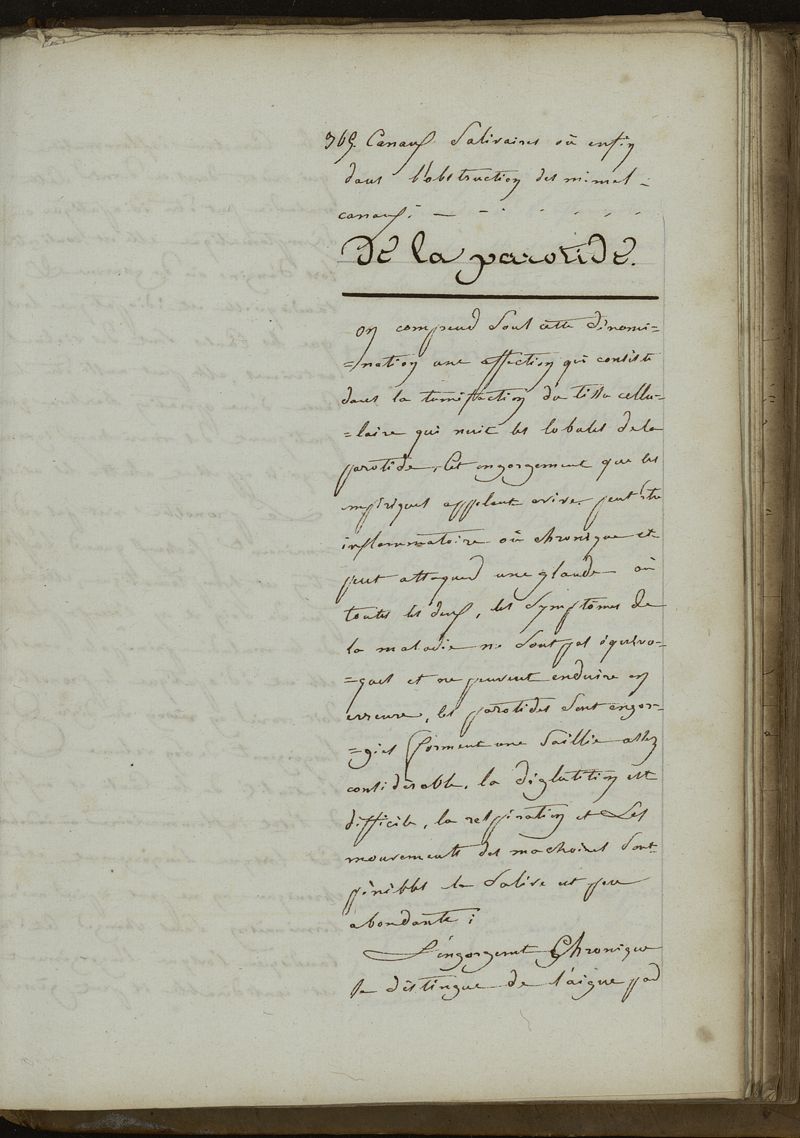 369. Canaux Salivaires où enfin
dans l'obstruction des mimes
canaux;
De la parotide.
on comprend Sous cette dénomi=
=nation une affection qui consiste
dans la tumifaction du tissu cellu=
=laire qui unit les lobules de la
parotide, Cet engorgement que les
empiriques appelent avive, peut être
inflammatoire où chronique et
peut attaquer une glande où
toutes les deux, les Symptomes de
la maladie ne Sont pas équivo=
=ques et ne peuvent enduire en
erreure, les parotides Sont engor=
=gées forment une Saillie assez
considerable, la déglutition est
difficile, la respiration et Les
mouvements des machoires Sont
pénibles la Salive est peu
abondante;
L'engorgement Chronique
se distingue de l'aigue par